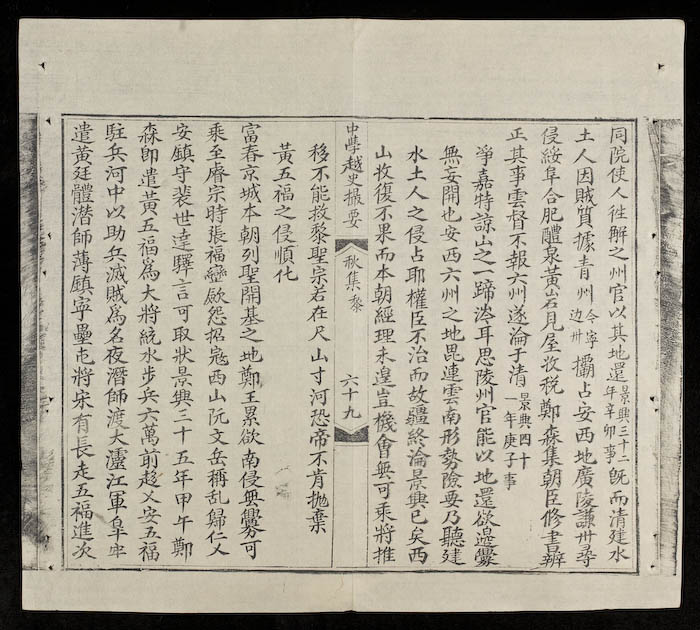 同院使人徃觧之州官以其地還景興三十二年辛卯事旣而清建水
土人因賊質據青州今寧边卅攔占安西地廣陵謙卅尋
侵綏阜合肥醴泉黄岩見屋收税鄭森集朝臣修書辯
正其事雲督不報六州遂淪于清景興四十一年庚子事
爭嘉特諒山之一蹄涔耳思陵州官能以地還欲邉釁
無妄開也安西六州之地毘連雲南形勢險要乃聽建
水土人之侵占耶權臣不治而故疆終淪景興已矣西
山收復不果而本朝經理未遑豈機會無可乘將推
移不能救黎聖宗若在尺山寸河恐帝不肯抛棄
黄五福之侵順化
富春京城本朝列聖開基之地鄭王累欲南侵無釁可
乘至睿宗時張福巒歛怨招冦西山阮文岳稱乱歸仁乂
安鎮守裴世達驛言可取狀景興三十五年甲午鄭
森卽遣黄五福爲大將統水步兵六萬前趍乂安五福
駐兵河中以助兵滅賊爲名夜潛師渡大瀘江軍阜牢
遣黄廷體潛師薄鎮寧壘屯將宋有長走五福進次
中學越史撮要
秋集黎
六十九